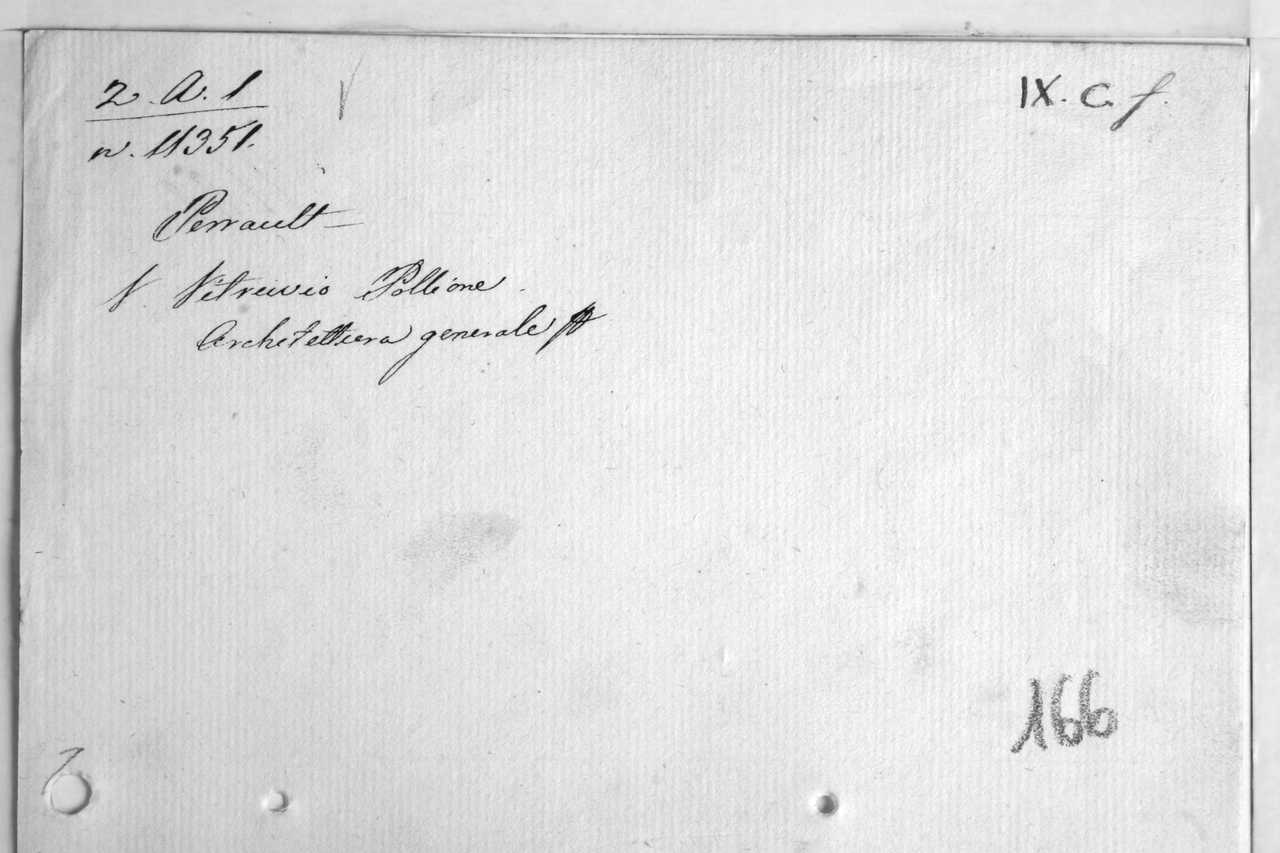 2. A. 1
IX. C. f.
n. 11351.
Perrault
V. Vitruvio Pollione.
Architettura generale
166